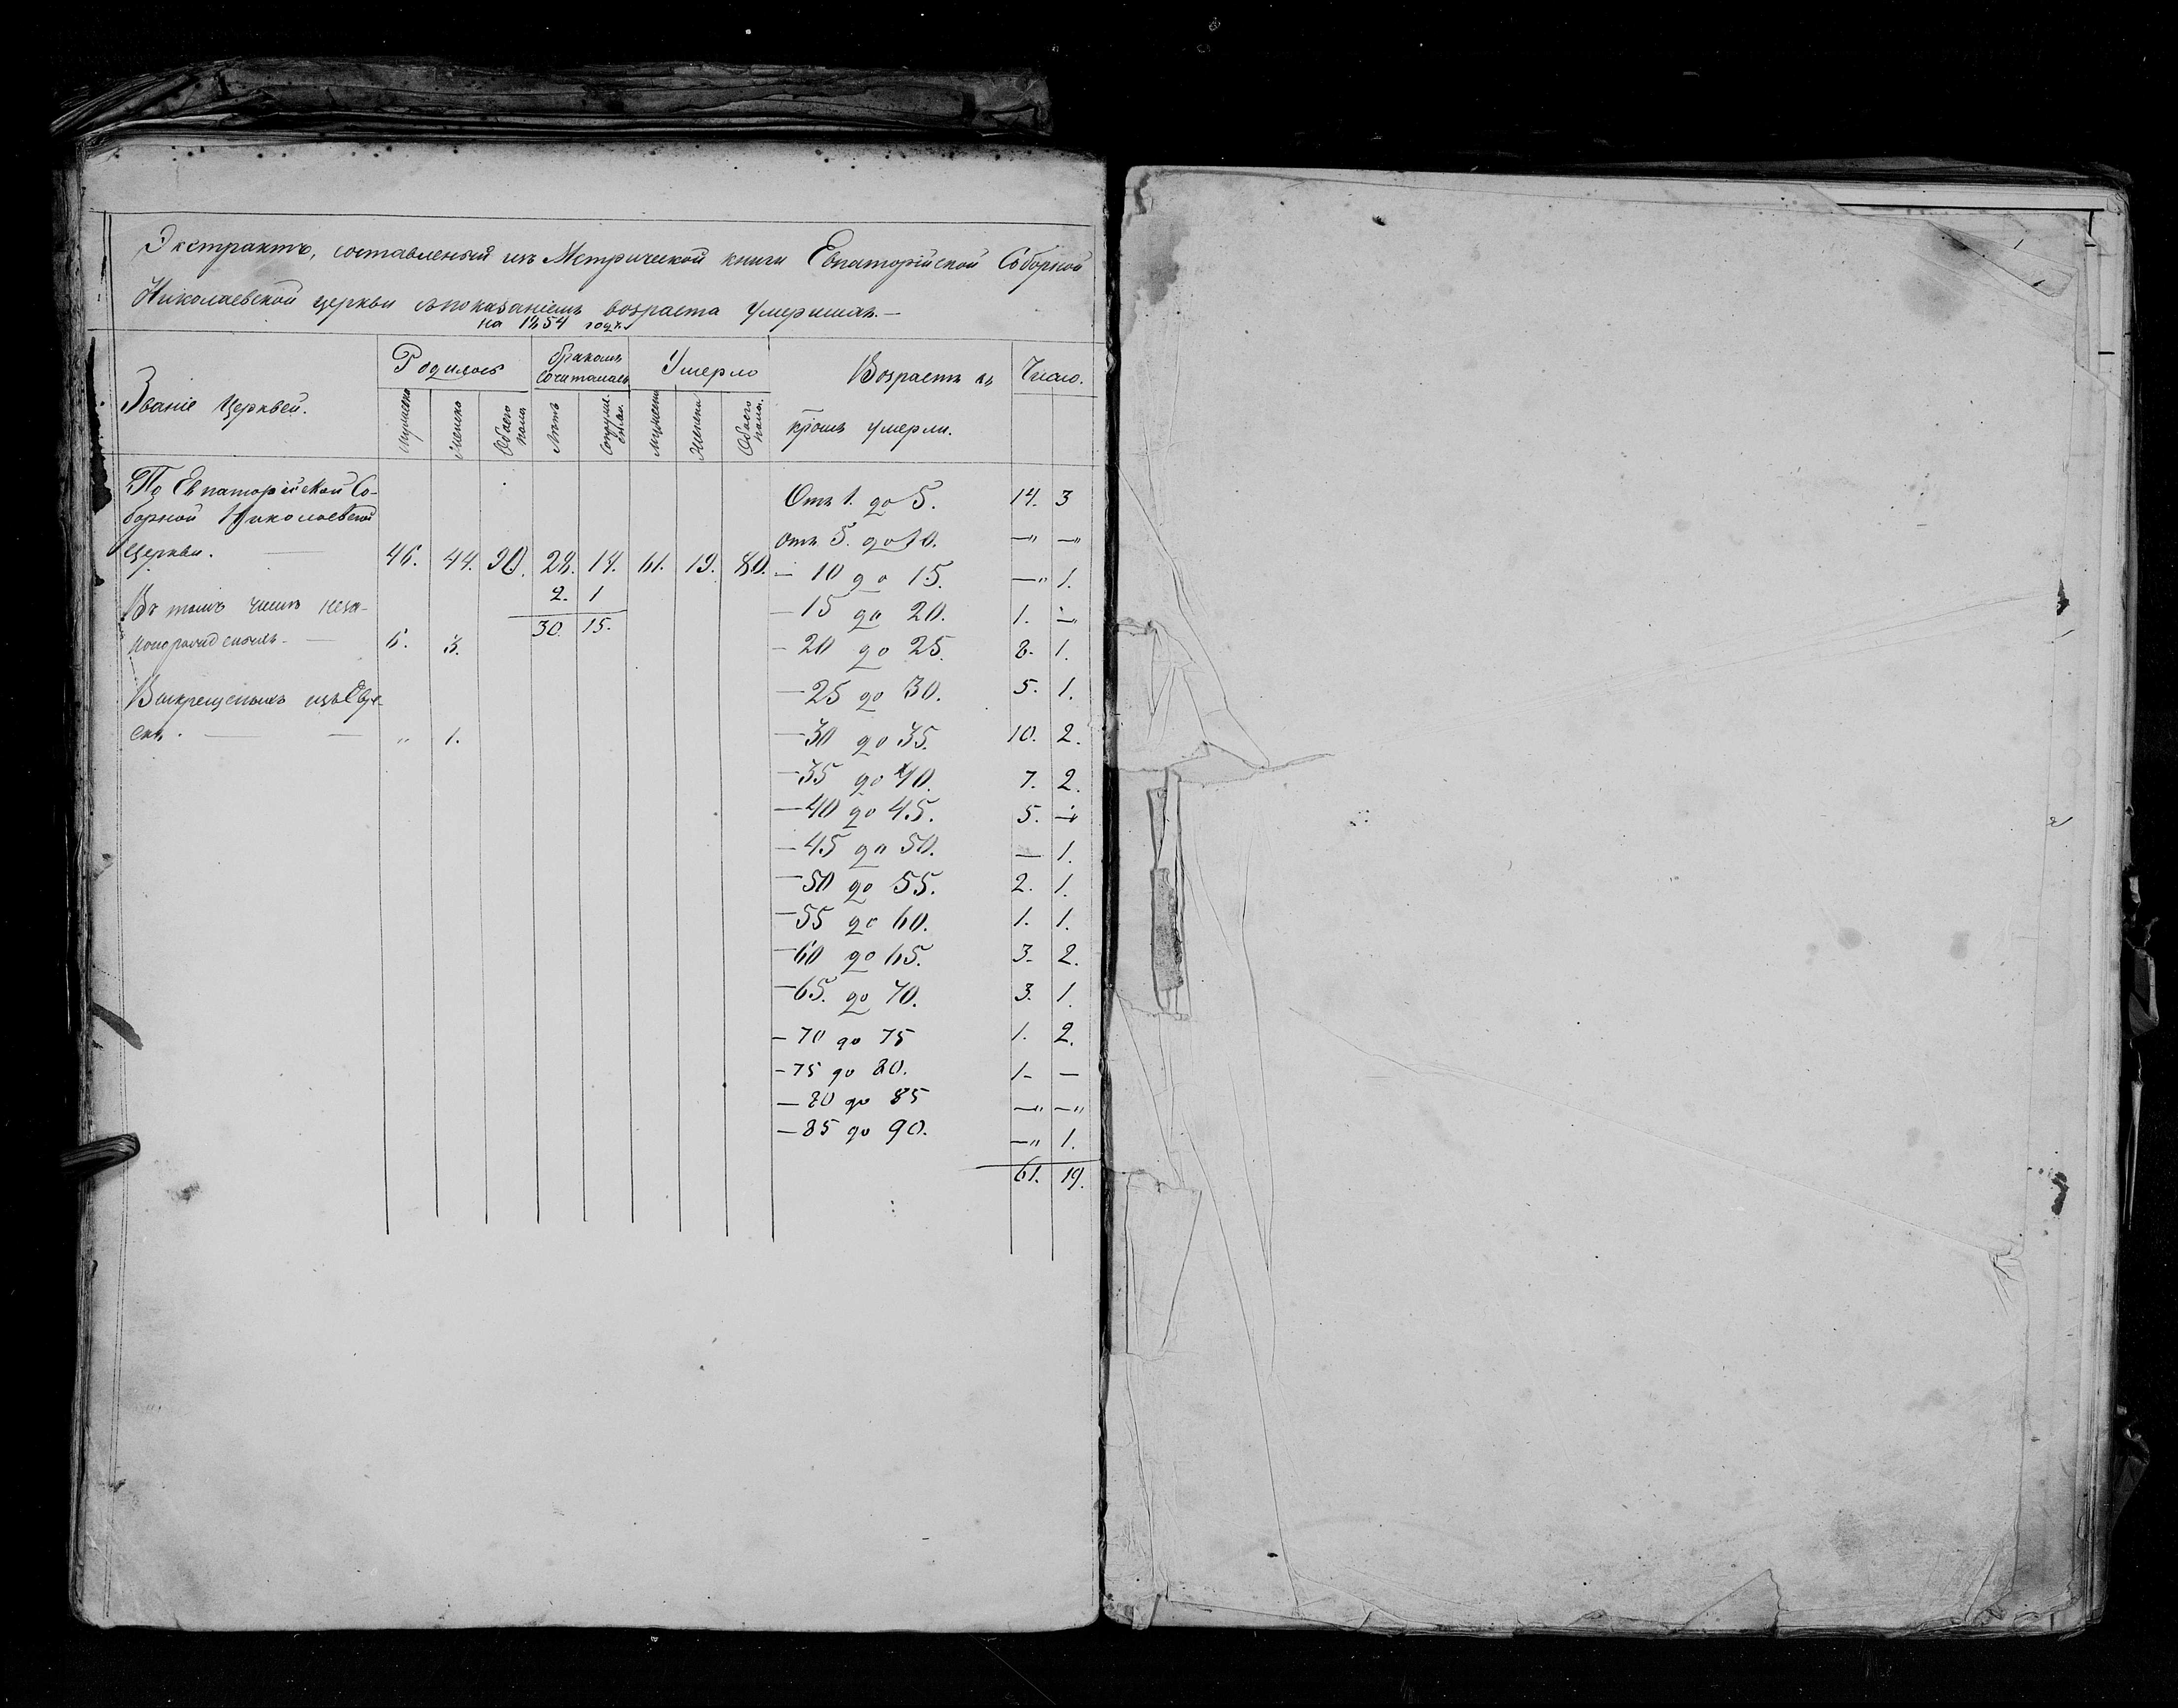 Экстрактъ, составленый изъ Метрической книги Евпаторійской Соборной
Николаевской церкви съ показаніемъ возраста умершихъ.—
на 1854 годъ
Званіе Церквей.
Родилось
бракомъ сочиталась
Умерло
Возрастъ въ
кромъ умерли.
Число.
мужеска
женска
Обоего пола
Лицъ
мужеска
Женска
Обоего пола.
По Евпаторійской Со-
борной Николаевской
Церкви. — 46. 44. 90. 28. 14. 61. 19. 80.
2. 1
30. 15.
Въ томъ числѣ неза-
конорожденыхъ. — 6. 3.
Выкрещеныхъ изъ Евре-
евъ. — — „ 1.
Отъ 1. до 5. 14. 3
отъ 5. до 10. —„ —„
— 10 до 15. —„ 1.
— 15 до 20. 1. —„
— 20 до 25. 8. 1.
— 25 до 30. 5. 1.
— 30 до 35. 10. 2.
— 35 до 40. 7. 2.
— 40 до 45. 5. —„
— 45 до 50. — 1.
— 50 до 55. 2. 1.
— 55 до 60. 1. 1.
— 60 до 65. 3. 2.
— 65. до 70. 3. 1.
— 70 до 75 1. 2.
— 75 до 80. 1. —
— 80 до 85 —„ —„
— 85 до 90. —„ 1.
61. 19.